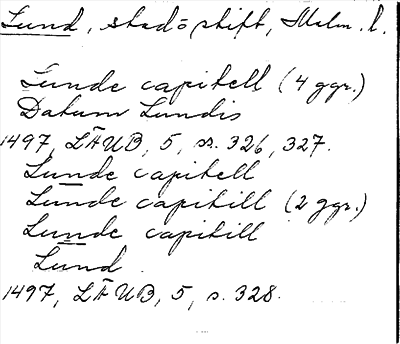 Lund, stad o stift, Malm. l.
Lunde capitell (4 ggr.)
Datum Lundis
1497, LÄUB, 5, s. 326, 327.
Lunde capitell
Lunde capitill (2 ggr.)
Lunde capitill
Lund
1497, LÄUB, 5, s. 328.